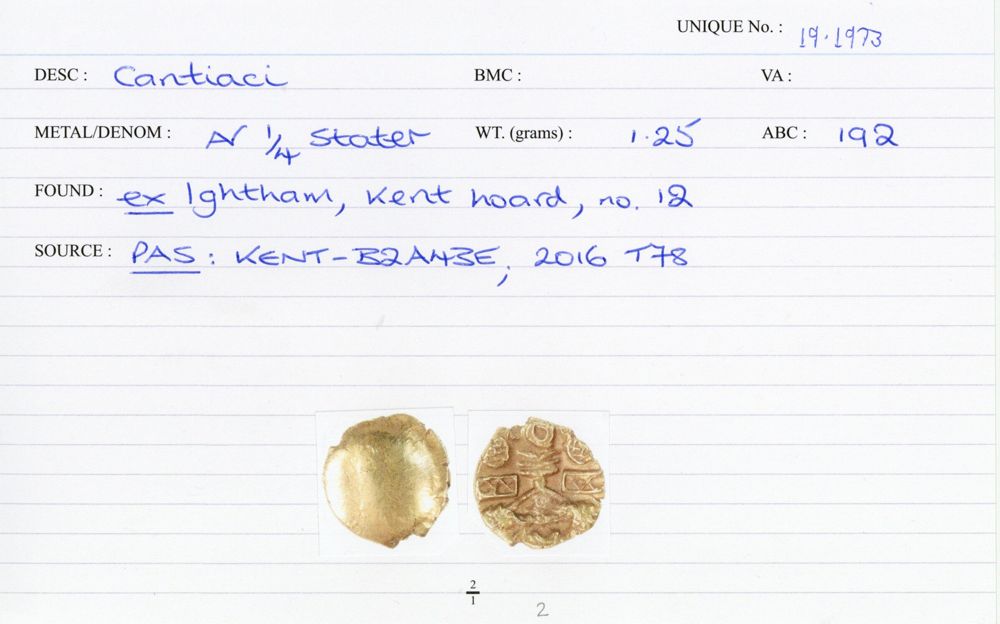 UNIQUE No. : 19.1973
DESC : Cantiaci BMC : VA :
METAL/DENOM : AV 1/4 Stater WT. (grams) : 1.25 ABC : 192
FOUND : ex Ightham, Kent hoard, no. 12
SOURCE : PAS : KENT-B2A43E, 2016 T78
2/1
2